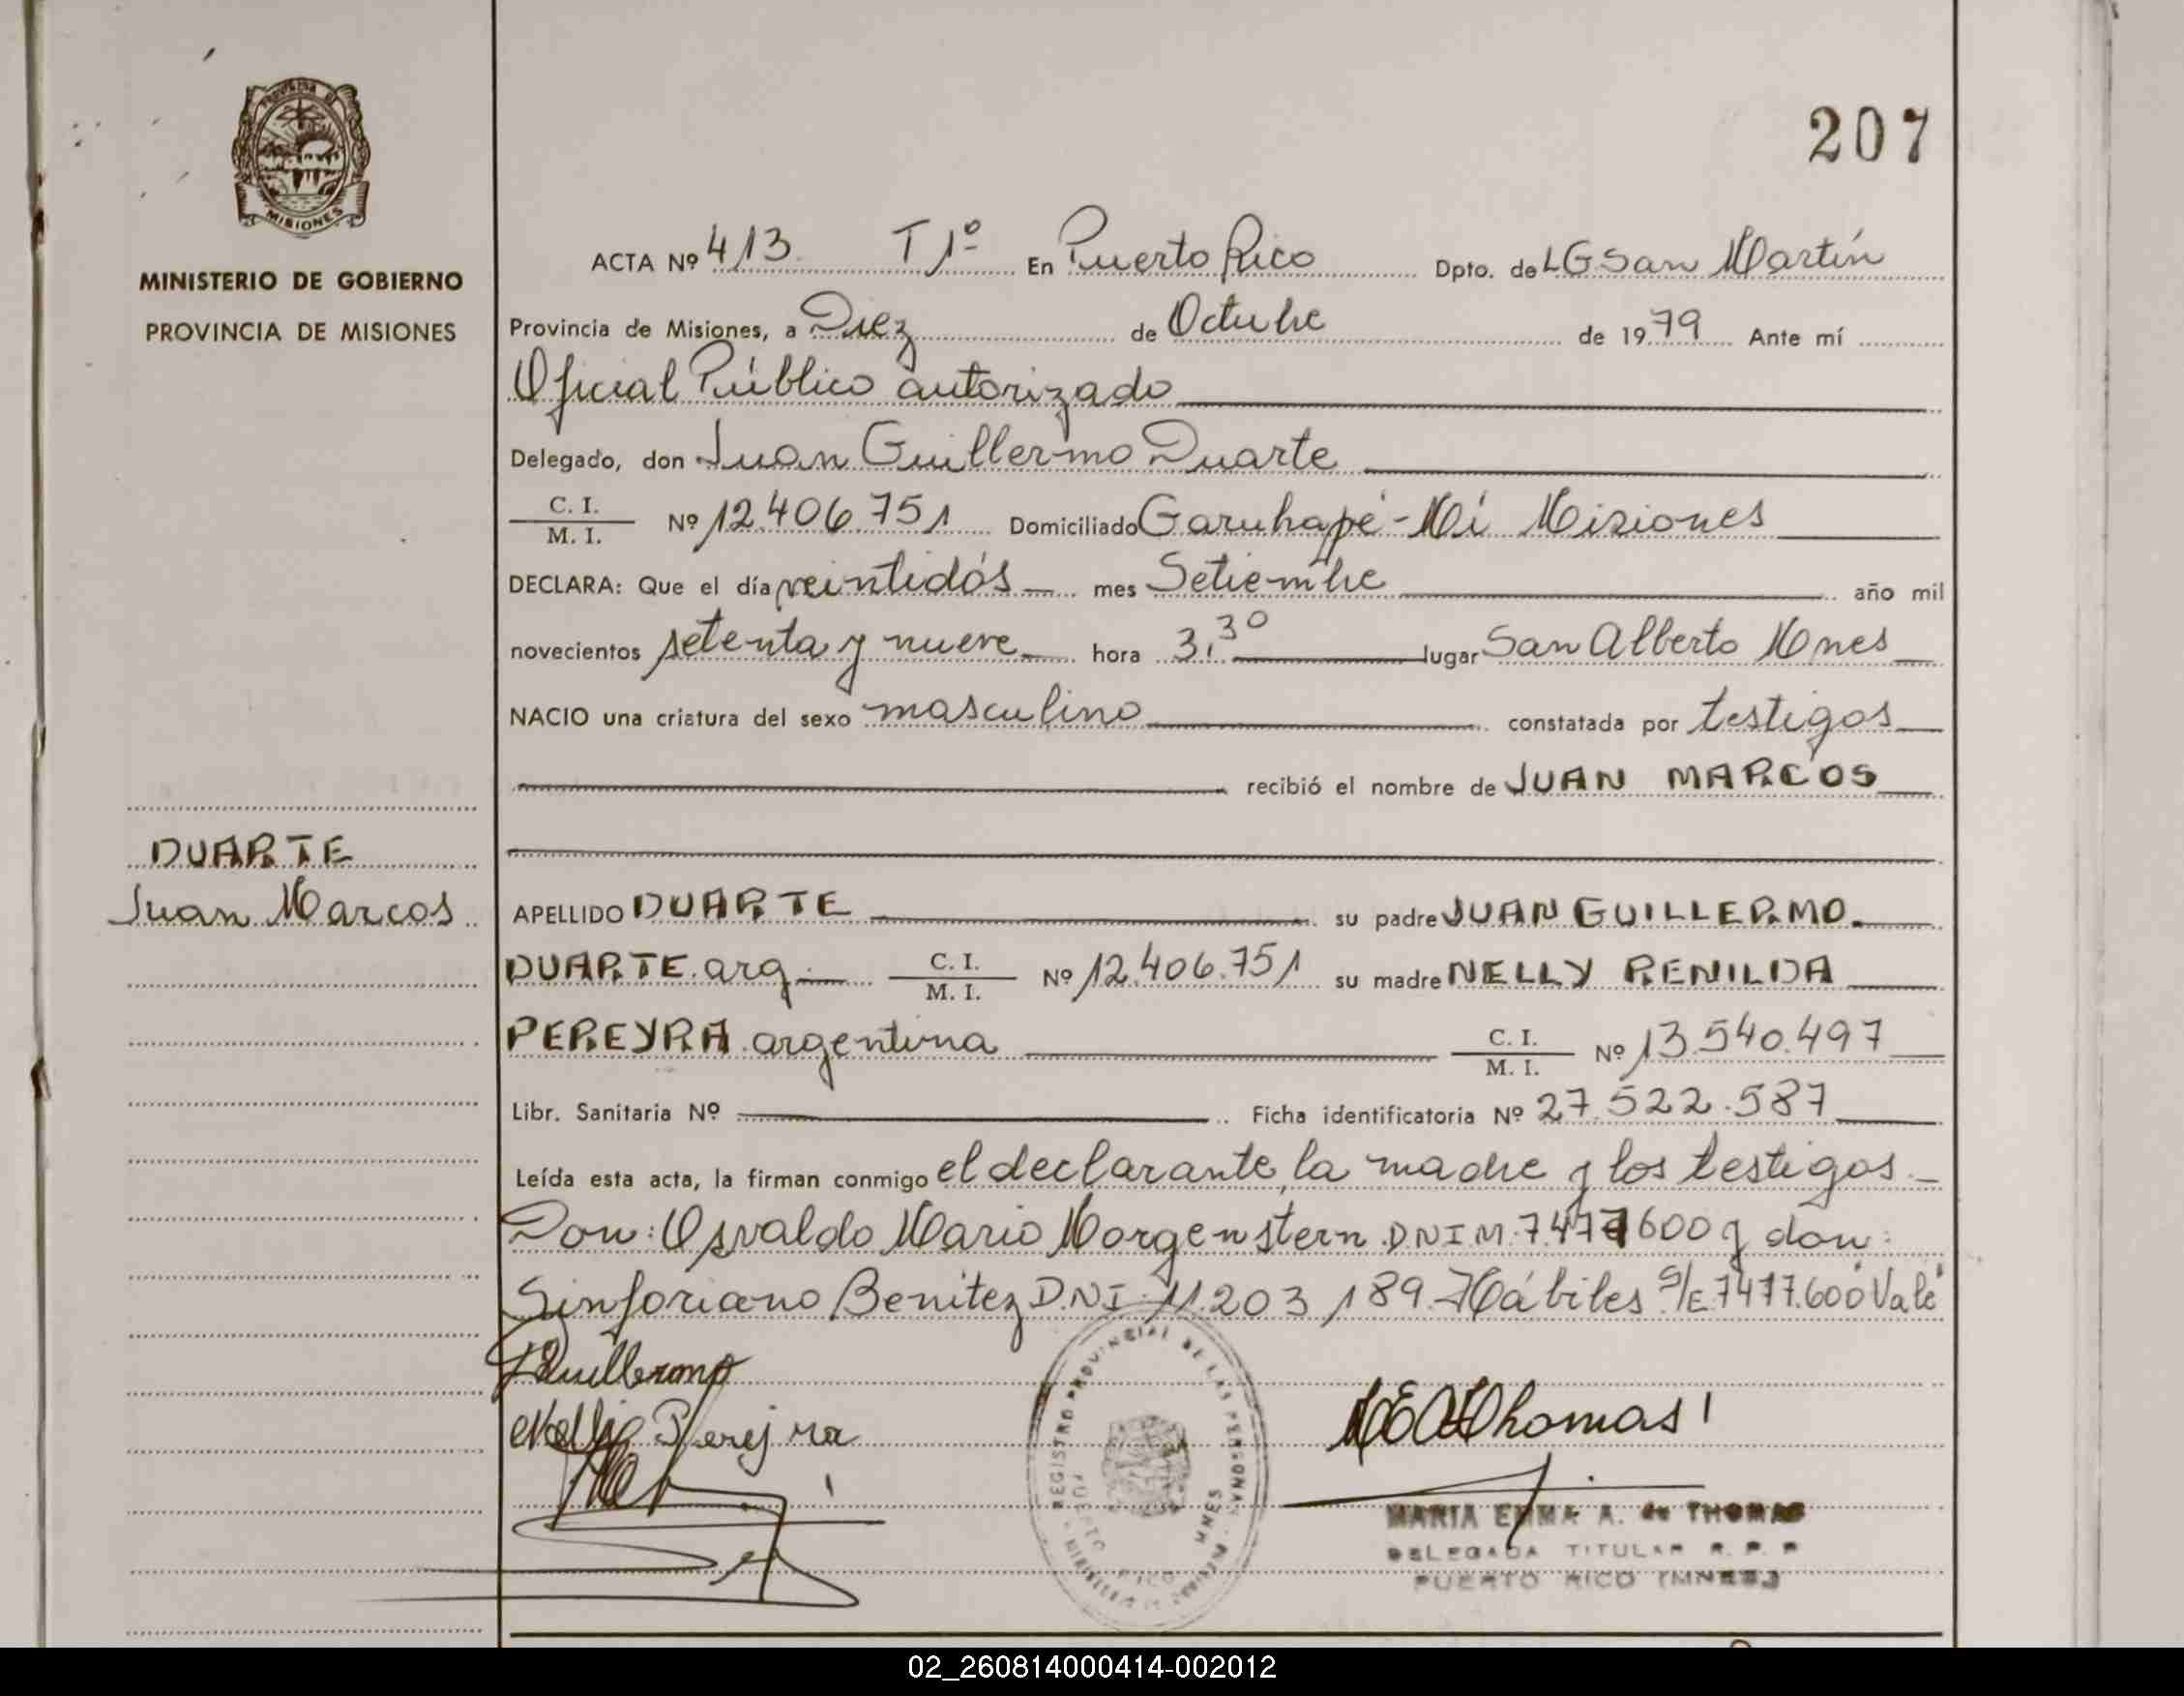 207
PROVINCIA DE
MISIONES
MINISTERIO DE GOBIERNO
PROVINCIA DE MISIONES
ACTA Nº 413 T 1º En Puerto Rico Dpto. de LG San Martín
Provincia de Misiones, a Diez de Octubre de 1979 Ante mí
Oficial Público autorizado
Delegado, don Juan Guillermo Duarte
C. I.
M. I. Nº 12.406.751 Domiciliado Garuhapé-Mí Misiones
DECLARA: Que el día veintidós mes Setiembre año mil
novecientos setenta y nueve hora 3,30 lugar San Alberto Mnes
NACIO una criatura del sexo masculino constatada por testigos
recibió el nombre de JUAN MARCOS
DUARTE
Juan Marcos
APELLIDO DUARTE su padre JUAN GUILLERMO
DUARTE arg. C. I.
M. I. Nº 12.406.751 su madre NELLY RENILDA
PEREYRA argentina C. I.
M. I. Nº 13.540.497
Libr. Sanitaria Nº Ficha identificatoria Nº 27.522.587
Leída esta acta, la firman conmigo el declarante, la madre y los testigos
Don: Osvaldo Mario Morgenstern D.N.I.M. 7.477600 y don:
Sinforiano Benitez D.N.I. 11.203.189. Hábiles S/E 7477.600 Vale
Guillermo
Pereyra
Thomas
REGISTRO PROVINCIAL DE LAS PERSONAS
PUERTO RICO
MNES
MARIA EMMA A. de THOMAS
DELEGADA TITULAR R. P. P
PUERTO RICO (MNES.)
02_260814000414-002012